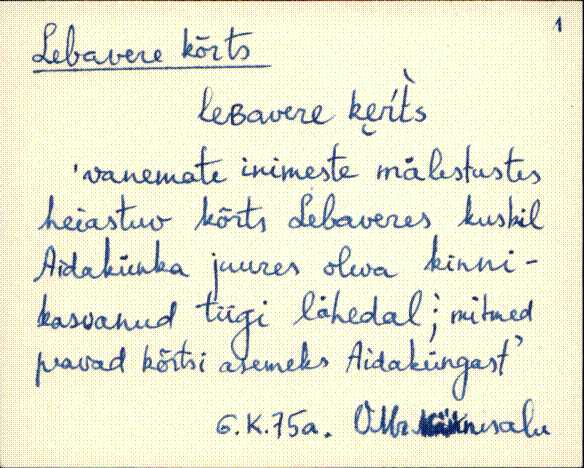 1
Lebavere kõrts
leBavere ke̮ŕt̀s
'vanemate inimeste mälestustes
heiastuv kõrts Lebaveres kuskil
Aidakünka juures oleva kinni-
kasvanud tiigi lähedal; mitmed
peavad kõrtsi asemeks Aidaküngast'
G.K.75a.